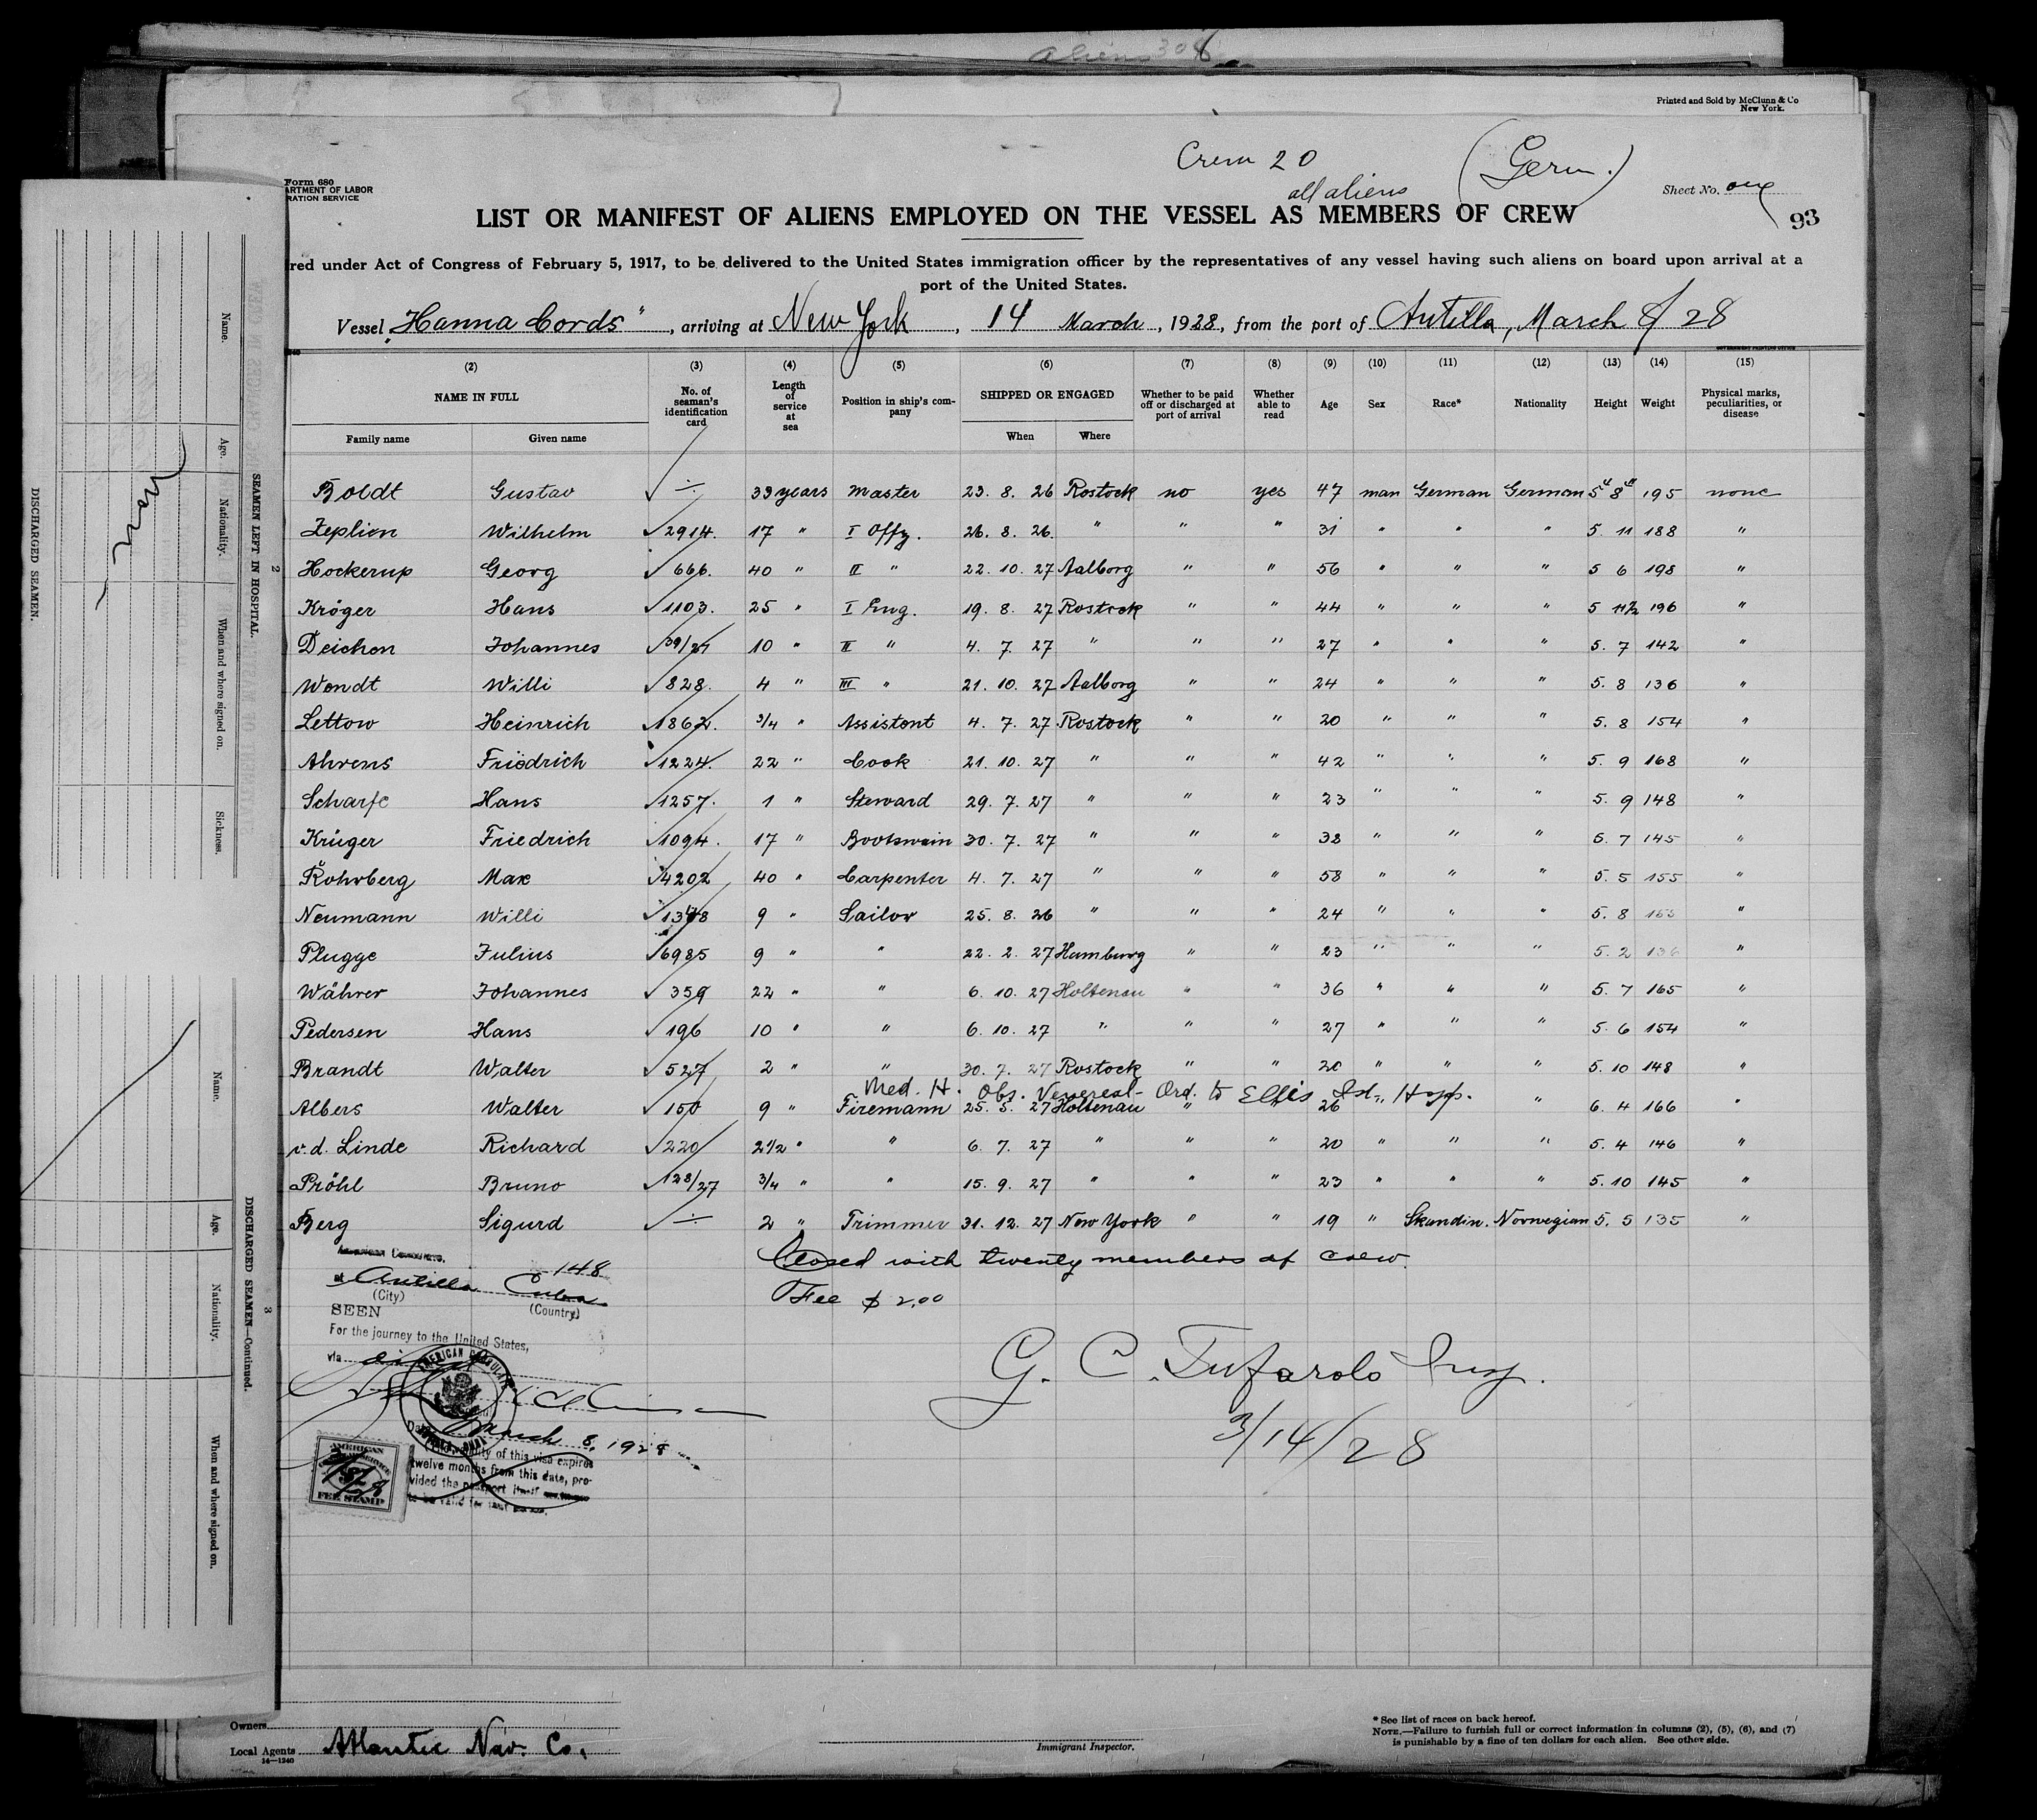 aliens 308
Printed and Sold by McClunn & Co
New York.
Crew 20
all aliens
(Germ.)
Form 680
ARTMENT OF LABOR
RATION SERVICE
Sheet No. one
LIST OR MANIFEST OF ALIENS EMPLOYED ON THE VESSEL AS MEMBERS OF CREW
93
red under Act of Congress of February 5, 1917, to be delivered to the United States immigration officer by the representatives of any vessel having such aliens on board upon arrival at a
port of the United States.
Vessel "Hanna Cords", arriving at New York, 14 March, 1928, from the port of Antilla, March 8/28
(2) (3) (4) (5) (6) (7) (8) (9) (10) (11) (12) (13) (14) (15)
NAME IN FULL No. of seaman's identification card Length of service at sea Position in ship's company SHIPPED OR ENGAGED Whether to be paid off or discharged at port of arrival Whether able to read Age Sex Race* Nationality Height Weight Physical marks, peculiarities, or disease
Family name Given name When Where
Boldt Gustav ÷ 33 years Master 23. 8. 26 Rostock no yes 47 man German German 5' 8" 195 none
Zeplien Wilhelm 2914. 17 " I Offz. 26. 8. 26. " " " 31 " " " 5 11 188 "
Hockerup Georg 666. 40 " II " 22. 10. 27 Aalborg " " 56 " " " 5 6 198 "
Kröger Hans 1103. 25 " I Eng. 19. 8. 27 Rostock " " 44 " " " 5 11½ 196 "
Deichen Johannes 39/27 10 " II " 4. 7. 27 " " " 27 " " " 5. 7 142 "
Wendt Willi 828. 4 " III " 21. 10. 27 Aalborg " " 24 " " " 5. 8 136 "
Lettow Heinrich 1862. 3/4 " Assistent 4. 7. 27 Rostock " " 20 " " " 5. 8 154 "
Ahrens Friedrich 1224. 22 " Cook 21. 10. 27 " " " 42 " " " 5. 9 168 "
Scharfe Hans 1257. 1 " Steward 29. 7. 27 " " " 23 " " " 5. 9 148 "
Krüger Friedrich 1094. 17 " Bootswain 30. 7. 27 " " " 38 " " " 6. 7 145 "
Rohrberg Max 4202 40 " Carpenter 4. 7. 27 " " " 58 " " " 5. 5 155 "
Neumann Willi 9 " Sailor 25. 8. 26 " " " 24 " " " 5. 8 "
Plugge Julius 6985 9 " " 22. 2. 27 Hamburg " " 23 " " " 5. 2 136 "
Währer Johannes 359 22 " " 6. 10. 27 Holtenau " " 36 " " " 5. 7 165 "
Pedersen Hans 196 10 " " 6. 10. 27 " " " 27 " " " 5. 6 154 "
Brandt Walter 527 2 " " 30. 7. 27 Rostock " " 20 " " " 5. 10 148 "
Med. H. Obs. Venereal- Ord. to Ellis Isl. Hosp.
Albers Walter 150 9 " Firemann 25. 5. 27 Holtenau " " 26 " " 6. 4 166 "
v.d. Linde Richard 220 2 1/2 " " 6. 7. 27 " " " 20 " " " 5. 4 146 "
Pröhl Bruno 128/27 3/4 " " 15. 9. 27 " " " 23 " " " 5. 10 145 "
Berg Sigurd ÷ 2 " Trimmer 31. 12. 27 New York " " 19 " Skandin. Norwegian 5. 5 135 "
Closed with twenty members of crew.
Fee $ 2.00
148
at Antilla Cuba
(City) (Country)
SEEN
For the journey to the United States,
via
AMERICAN CONSULAR
Date March 8, 1928
The validity of this visa expires
twelve months from this date, pro-
vided the passport itself
to be valid for that
AMERICAN
FEE STAMP
3/8/28
G. C. Tufarolo Insp.
3/14/28
Owners
Local Agents Atlantic Nav. Co.
14—1240
Immigrant Inspector.
* See list of races on back hereof.
NOTE.—Failure to furnish full or correct information in columns (2), (5), (6), and (7)
is punishable by a fine of ten dollars for each alien. See other side.
2
SEAMEN LEFT IN HOSPITAL.
Name. Age. Nationality. When and where signed on. Sickness.
DISCHARGED SEAMEN.
3
DISCHARGED SEAMEN—Continued.
Name. Age. Nationality. When and where signed on.